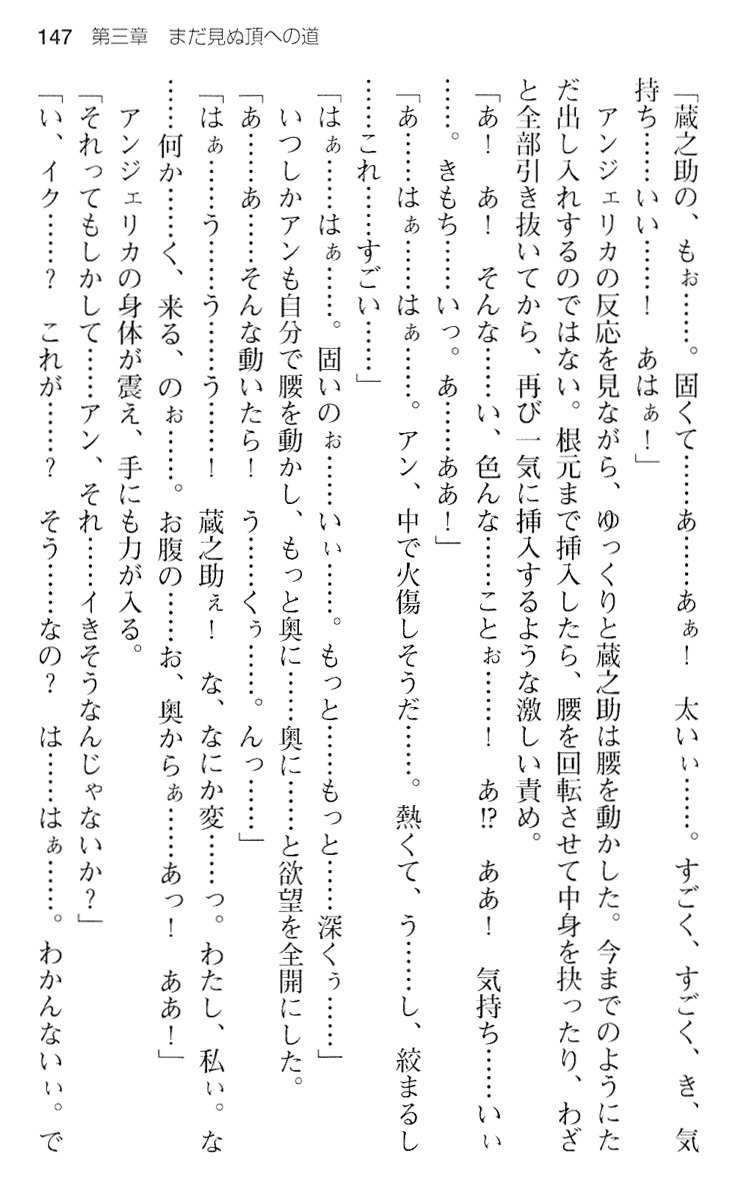 147　第三章　まだ見ぬ頂への道
「蔵之助の、もぉ……。固くて……あ……あぁ！　太いぃ……。すごく、すごく、き、気
持ち……いい……！　あはぁ！」
　アンジェリカの反応を見ながら、ゆっくりと蔵之助は腰を動かした。今までのようにた
だ出し入れするのではない。根元まで挿入したら、腰を回転させて中身を抉ったり、わざ
と全部引き抜いてから、再び一気に挿入するような激しい責め。
「あ！　あ！　そんな……い、色んな……ことぉ……！　あ!?　ああ！　気持ち……いぃ
……。きもち……いっ。あ……ああ！」
「あ……はぁ……はぁ……。アン、中で火傷しそうだ……。熱くて、う……し、絞まるし
……これ……すごい……」
「はぁ……はぁ……。固いのぉ……いぃ……。もっと……もっと……深くぅ……」
　いつしかアンも自分で腰を動かし、もっと奥に……奥に……と欲望を全開にした。
「あ……あ……そんな動いたら！　う……くぅ……。んっ……」
「はぁ……う……う……う……！　蔵之助ぇ！　な、なにか変……っ。わたし、私ぃ。な
……何か……く、来る、のぉ……。お腹の……お、奥からぁ……あっ！　ああ！」
　アンジェリカの身体が震え、手にも力が入る。
「それってもしかして……アン、それ……イきそうなんじゃないか？」
「い、イク……？　これが……？　そう……なの？　は……はぁ……。わかんないぃ。で